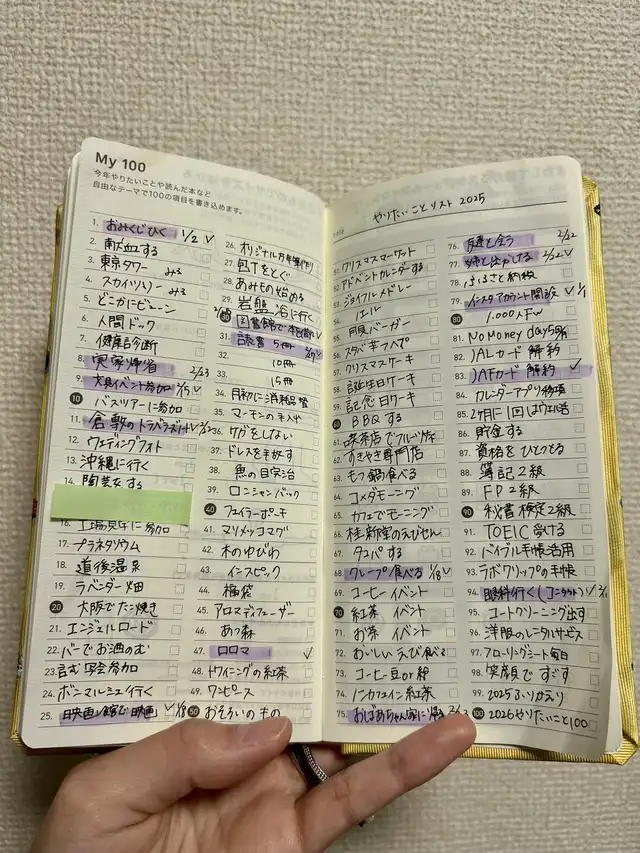 My 100
今年やりたいことや読んだ本など
自由なテーマで100の項目を書き込めます。
1. おみくじひく 1/2 ✓
2. 献血する
3. 東京タワー みる
4. スカイツリー みる
5. どこかにビューン
6. 人間ドック
7. 健康診断
8. 実家帰省 2/23
9. 犬具イベント参加 ✓
10 バスツアーに参加
11. 倉敷のトラベラーズ ✓
12. ウェディングフォト
13. 沖縄に行く
14. 陶芸をする
16. 工場見学に参加
17. プラネタリウム
18. 道後温泉
19. ラベンダー畑
20 大阪でたこ焼き
21. エンジェルロード
22. バーでお酒のむ
23. 写会参加
24. ボンマルシェ行く
25. 映画館で映画 ✓ 1/8
26. オリジナル万年筆作り
27. 包丁をとぐ
28. あみもの始める
29. 岩盤浴に行く
30 図書館で本を借りる ✓
31. 読書 5冊
32. 10冊
33. 15冊
34. 月初に消耗品
35. マーモンの手入れ
36. ケガをしない
37. ドレスを手放す
38. 魚の目完治
39. ロニシャンバッグ
40 フェイラーポーチ
41. マリメッコマグ
42. 木のゆびわ
43. インスピック
44. 福袋
45. アロマディフューザー
46. あつ森
47. ロロマ ✓
48. トワイニングの紅茶
49. ワンピース
50 おそろいのもの
やりたいことリスト 2025
51. クリスマスマーケット
52. アドベントカレンダーする
53. ジョイフルメドレー
54. 〃 エール
55. 月見バーガー
56. スタバ 芋フラペ
57. クリスマスケーキ
58. 誕生日ケーキ
59. 記念日ケーキ
60 BBQする
61. 喫茶店でフルーツサンド
62. すきやき専門店
63. もつ鍋食べる
64. コメダモーニング
65. カフェでモーニング
66. 桂新堂のえびせん
67. タコパする
68. クレープ食べる 1/8 ✓
69. コーヒーイベント
70 紅茶 イベント
71. お茶 イベント
72. おいしいえび食べる
73. コーヒー豆or粉
74. ノンカフェイン紅茶
75. おばあちゃん家に帰る 2/23
76. 友達と会う 2/22
77. 姉と出かける 2/22 ✓
78. ふるさと納税
79. インスタアカウント開設 ✓ 1/1
80 〃 1,000人Fw
81. No Money day 5日
82. JALカード 解約
83. JAFカード 解約 ✓
84. カレンダーアプリ移項
85. 2ヶ月に1回はウェル活
86. 貯金する
87. 資格をひとつとる
88. 簿記2級
89. FP2級
90 秘書検定2級
91. TOEIC 受ける
92. バイブル手帳活用
93. ラボクリップの手帳
94. 眼科行く(コンタクト) ✓
95. コートクリーニング出す
96. 洋服のレンタルサービス
97. フローリングシート毎日
98. 笑顔ですごす
99. 2025ふりかえり
100 2026やりたいこと100